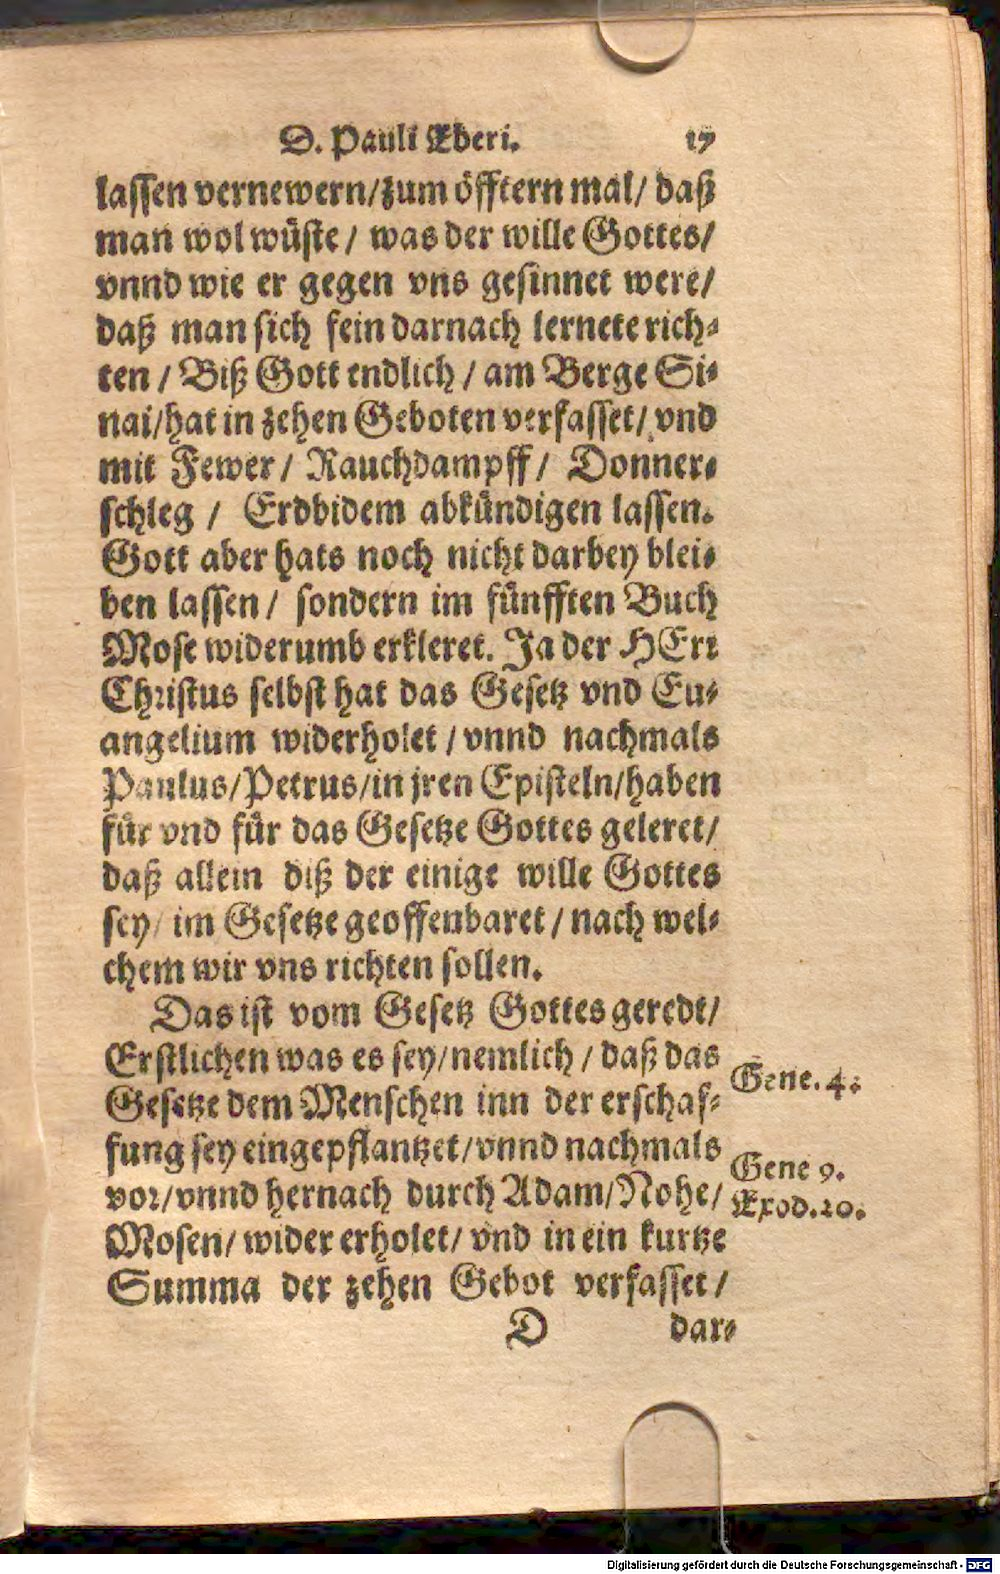 D. Pauli Eberi. 17
lassen vernewern/zum öfftern mal/ daß
man wol wüste / was der wille Gottes/
vnnd wie er gegen vns gesinnet were/
daß man sich fein darnach lernete rich-
ten / Biß Gott endlich / am Berge Si-
nai/hat in zehen Geboten verfasset/ vnd
mit Fewer/ Rauchdampff/ Donner-
schleg / Erdbidem abkündigen lassen.
Gott aber hats noch nicht darbey blei-
ben lassen / sondern im fünfften Buch
Mose widerumb erkleret. Ja der HErr
Christus selbst hat das Gesetz vnd Eu-
angelium widerholet / vnnd nachmals
Paulus/Petrus/in jren Episteln/haben
für vnd für das Gesetze Gottes geleret/
daß allein diß der einige wille Gottes
sey/ im Gesetze geoffenbaret / nach wel-
chem wir vns richten sollen.
Das ist vom Gesetz Gottes geredt/
Erstlichen was es sey/nemlich / daß das
Gesetze dem Menschen inn der erschaf-
Gene. 4.
fung sey eingepflantzet/vnnd nachmals
vor/vnnd hernach durch Adam/Nohe/
Gene 9.
Exod.20.
Mosen/ wider erholet/ vnd in ein kurtze
Summa der zehen Gebot verfasset /
D dar-
Digitalisierung gefördert durch die Deutsche Forschungsgemeinschaft - DFG